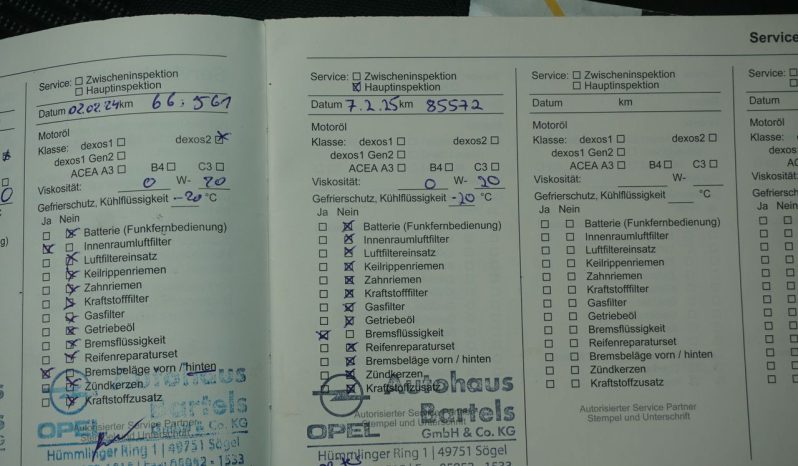 Service
Service: Zwischeninspektion
Hauptinspektion
Datum 02.02.24 km 66.561
Motoröl
Klasse: dexos1 dexos2
dexos1 Gen2
ACEA A3 B4 C3
Viskosität: 0 W- 20
Gefrierschutz, Kühlflüssigkeit -20 °C
Ja Nein
Batterie (Funkfernbedienung)
Innenraumluftfilter
Luftfiltereinsatz
Keilrippenriemen
Zahnriemen
Kraftstofffilter
Gasfilter
Getriebeöl
Bremsflüssigkeit
Reifenreparaturset
Bremsbeläge vorn / hinten
Zündkerzen
Kraftstoffzusatz
Autohaus
Bartels
Autorisierter Service Partner
Stempel und Unterschrift
OPEL GmbH & Co. KG
Hümmlinger Ring 1 | 49751 Sögel
05952 - 1533
Service: Zwischeninspektion
Hauptinspektion
Datum 7.2.25 km 85572
Motoröl
Klasse: dexos1 dexos2
dexos1 Gen2
ACEA A3 B4 C3
Viskosität: 0 W- 20
Gefrierschutz, Kühlflüssigkeit -20 °C
Ja Nein
Batterie (Funkfernbedienung)
Innenraumluftfilter
Luftfiltereinsatz
Keilrippenriemen
Zahnriemen
Kraftstofffilter
Gasfilter
Getriebeöl
Bremsflüssigkeit
Reifenreparaturset
Bremsbeläge vorn / hinten
Zündkerzen
Kraftstoffzusatz
Autohaus
Bartels
Autorisierter Service Partner
Stempel und Unterschrift
OPEL GmbH & Co. KG
Hümmlinger Ring 1 | 49751 Sögel
05952 - 1533
Service: Zwischeninspektion
Hauptinspektion
Datum km
Motoröl
Klasse: dexos1 dexos2
dexos1 Gen2
ACEA A3 B4 C3
Viskosität: W-
Gefrierschutz, Kühlflüssigkeit °C
Ja Nein
Batterie (Funkfernbedienung)
Innenraumluftfilter
Luftfiltereinsatz
Keilrippenriemen
Zahnriemen
Kraftstofffilter
Gasfilter
Getriebeöl
Bremsflüssigkeit
Reifenreparaturset
Bremsbeläge vorn / hinten
Zündkerzen
Kraftstoffzusatz
Autorisierter Service Partner
Stempel und Unterschrift
Service:
Datum
Motoröl
Klasse:
Viskosität:
Ja Nein